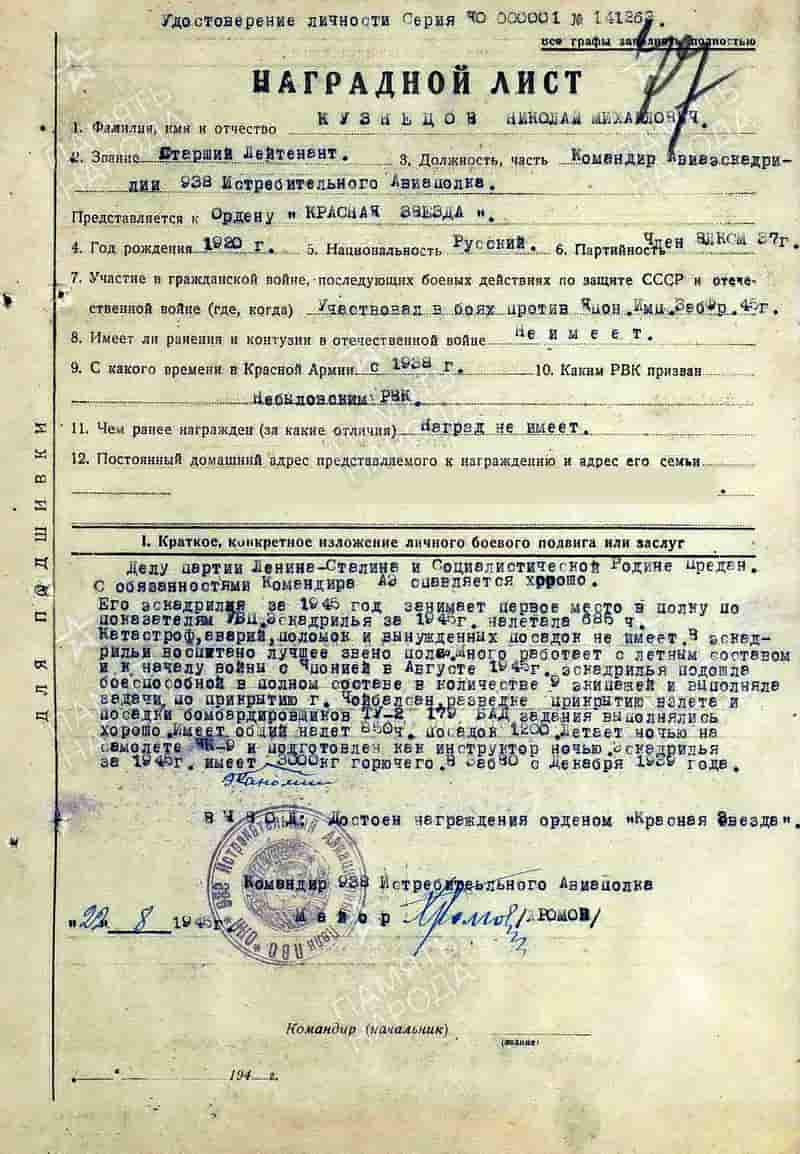 Удостоверение личности Серия ЧО 000001 № 141262.
все графы заполнять полностью
НАГРАДНОЙ ЛИСТ
1. Фамилия, имя и отчество КУЗНЕЦОВ НИКОЛАЙ МИХАЙЛОВИЧ.
2. Звание Старший Лейтенант. 3. Должность, часть Командир Авиаэскадри-
лии 938 Истребительного Авиаполка.
Представляется к Ордену "КРАСНАЯ ЗВЕЗДА".
4. Год рождения 1920 г. 5. Национальность Русский. 6. Партийность Член ВЛКСМ 37г.
7. Участие в гражданской войне, последующих боевых действиях по защите СССР и отече-
ственной войне (где, когда) Участвовал в боях против Япон.Имп.ЗабФр.45г.
8. Имеет ли ранения и контузии в отечественной войне Не имеет.
9. С какого времени в Красной Армии с 1938 г. 10. Каким РВК призван
Небыловским РВК.
11. Чем ранее награжден (за какие отличия) Наград не имеет.
12. Постоянный домашний адрес представляемого к награждению и адрес его семьи
I. Краткое, конкретное изложение личного боевого подвига или заслуг
Делу партии Ленина-Сталина и Социалистической Родине предан.
С обязанностями Командира АЭ спавляется хорошо.
Его эскадрилия за 1945 год занимает первое место в полку по
показателям УБП.эскадрилья за 1945г. налетала 685 ч.
Катастроф,аварий,поломок и вынужденных посадок не имеет.В эскад-
рильи воспитано лучшее звено полка.Много работает с летным составом
и к началу войны с Японией в Августе 1945г. эскадрилья подошла
боеспособной в полном составе в количестве 9 экипажей и выполняла
задачи по прикрытию г. Чойбалсан,разведке прикрытию взлета и
посадки бомбардировщиков ТУ-2 179 БАД задания выполнялись
хорошо.Имеет общий налет 850ч. посадок 1200.Летает ночью на
самолете ЯК-9 и подготовлен как инструктор ночью.эскадрилья
за 1945г. имеет 3000кг горючего.В ЗабВО с Декабря 1939 года.
экономии
ВЫВОД: Достоен награждения орденом "Красная Звезда".
Командир 938 Истребительного Авиаполка
"22" 8 1945г. Майор /ХРОМОВ/
Командир (начальник)
(звание)
" " 194 г.
ДЛЯ ПОДШИВКИ
938 Истребительный Авиационный Полк ПВО
ПАМЯТЬ НАРОДА